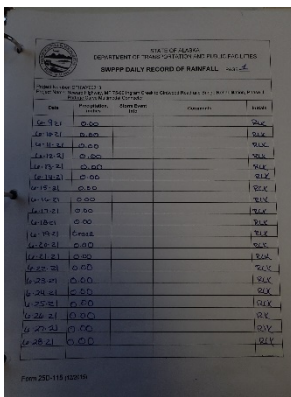 STATE OF ALASKA
DEPARTMENT OF TRANSPORTATION AND PUBLIC FACILITIES
SWPPP DAILY RECORD OF RAINFALL
Project Number
Date Precipitation, inches Storm Event Info Comments Initials
6-9-21 0.00 RLK
6-10-21 0.00 RLK
6-11-21 0.00 RLK
6-12-21 0.00 RLK
6-13-21 0.00 RLK
6-14-21 0.00 RLK
6-15-21 0.00 RLK
6-16-21 0.00 RLK
6-17-21 0.00 RLK
6-18-21 0.00 RLK
6-19-21 RLK
6-20-21 0.00 RLK
6-21-21 0.00 RLK
6-22-21 0.00 RLK
6-23-21 0.00 RLK
6-24-21 0.00 RLK
6-25-21 0.00 RLK
6-26-21 0.00 RLK
6-27-21 0.00 RLK
6-28-21 0.00 RLK
Form 25D-115